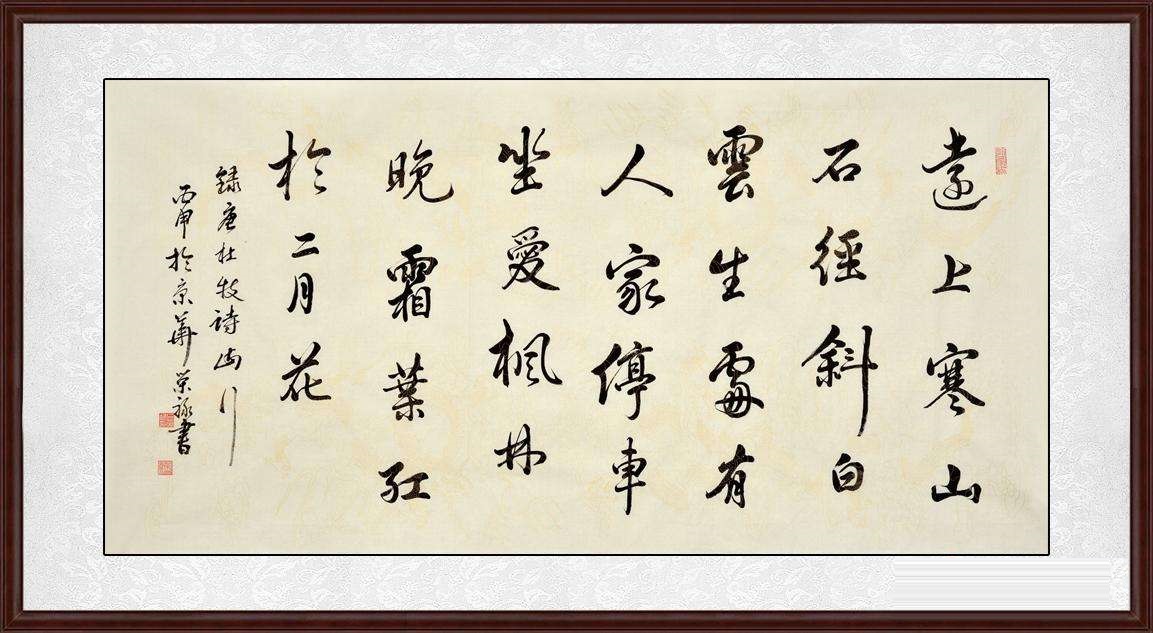 遠上寒山
石徑斜白
雲生處有
人家停車
坐愛楓林
晚霜葉紅
於二月花
錄唐杜牧詩山行
丙申於京華榮祿書